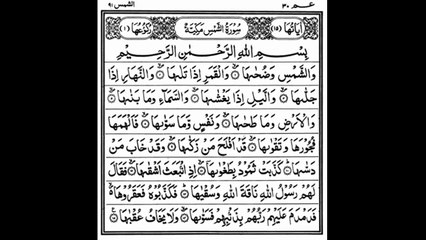 عـم ٣٠ الشمس ٩١
اٰيَاتُهَا (١٥) سُوْرَةُ الشَّمْسِ مَكِّيَّةٌ رُكُوْعُهَا (١)
بِسْمِ اللهِ الرَّحْمٰنِ الرَّحِيْمِ
وَالشَّمْسِ وَضُحٰىهَا ۝ وَالْقَمَرِ اِذَا تَلٰىهَا ۝ وَالنَّهَارِ اِذَا
جَلّٰىهَا ۝ وَالَّيْلِ اِذَا يَغْشٰىهَا ۝ وَالسَّمَآءِ وَمَا بَنٰىهَا ۝
وَالْاَرْضِ وَمَا طَحٰىهَا ۝ وَنَفْسٍ وَّمَا سَوّٰىهَا ۝ فَاَلْهَمَهَا
فُجُوْرَهَا وَتَقْوٰىهَا ۝ قَدْ اَفْلَحَ مَنْ زَكّٰىهَا ۝ وَقَدْ خَابَ مَنْ
دَسّٰىهَا ۝ كَذَّبَتْ ثَمُوْدُ بِطَغْوٰىهَآ ۝ اِذِ انْۢبَعَثَ اَشْقٰىهَا ۝ فَقَالَ
لَهُمْ رَسُوْلُ اللهِ نَاقَةَ اللهِ وَسُقْيٰهَا ۝ فَكَذَّبُوْهُ فَعَقَرُوْهَا
فَدَمْدَمَ عَلَيْهِمْ رَبُّهُمْ بِذَنْۢبِهِمْ فَسَوّٰىهَا ۝ وَلَا يَخَافُ عُقْبٰهَا ۝